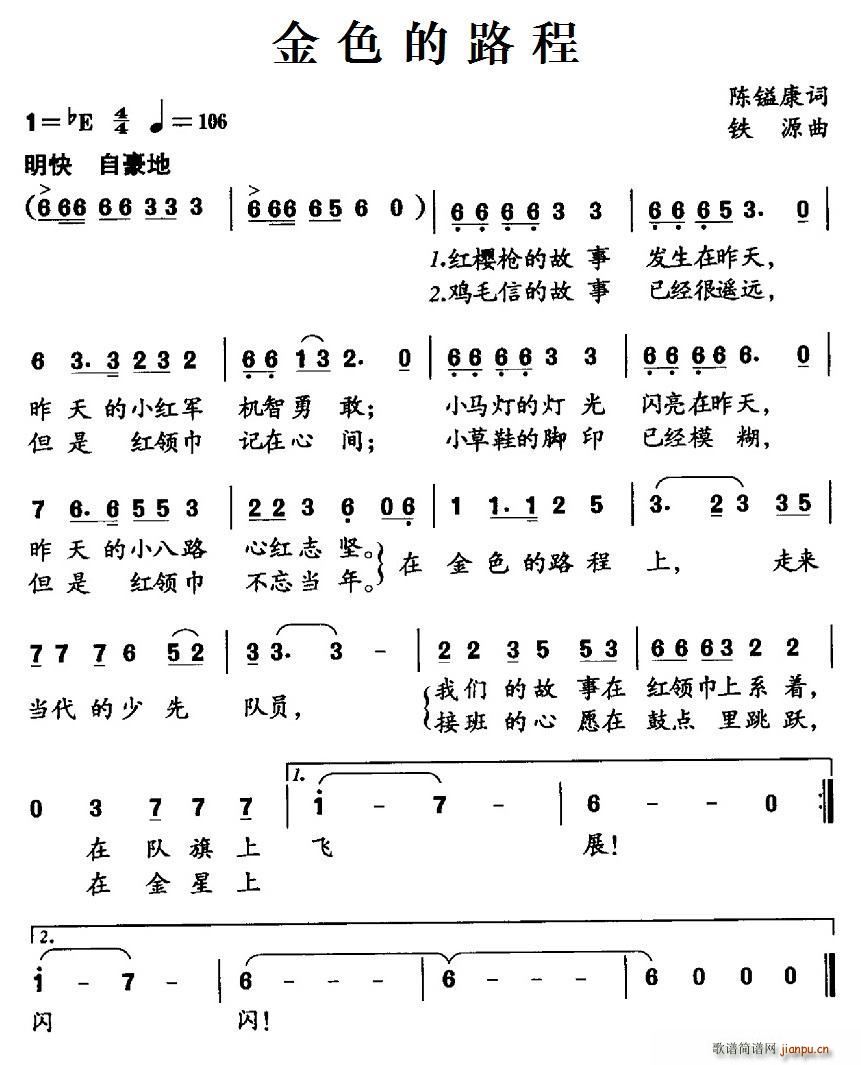 金色的路程
陈镒康词
1=♭E 4/4 ♩=106
铁 源曲
明快 自豪地
(6 66 66 33 3 | 6 66 65 6 0) | 66 66 3 3 | 66 65 3. 0
1.红樱枪的故 事 发生在昨天,
2.鸡毛信的故 事 已经很遥远,
6 3. 3 23 2 | 66 13 2. 0 | 66 66 3 3 | 66 66 6. 0
昨 天 的小红军 机智勇 敢; 小马灯的灯 光 闪亮在昨天,
但 是 红领巾 记在心 间; 小草鞋的脚 印 已经模 糊,
7 6. 6 55 3 | 22 3 6 06 | 1 1. 1 2 5 | 3. 2 3 35
昨 天 的小八路 心红志 坚。 在 金 色 的路 程 上, 走来
但 是 红领巾 不忘当 年。
7 7 7 6 52 | 3 3. 3 - | 2 2 3 5 53 | 66 63 2 2
当代 的少 先 队员, 我们 的故 事在 红领巾上系 着,
接班 的心 愿在 鼓点 里跳 跃,
1.
0 3 7 7 7 | i - 7 - | 6 - - 0 :|
在 队 旗 上 飞 展!
在 金 星 上
2.
i - 7 - | 6 - - - | 6 - - - | 6 0 0 0
闪 闪!
歌谱简谱网
jianpu.cn